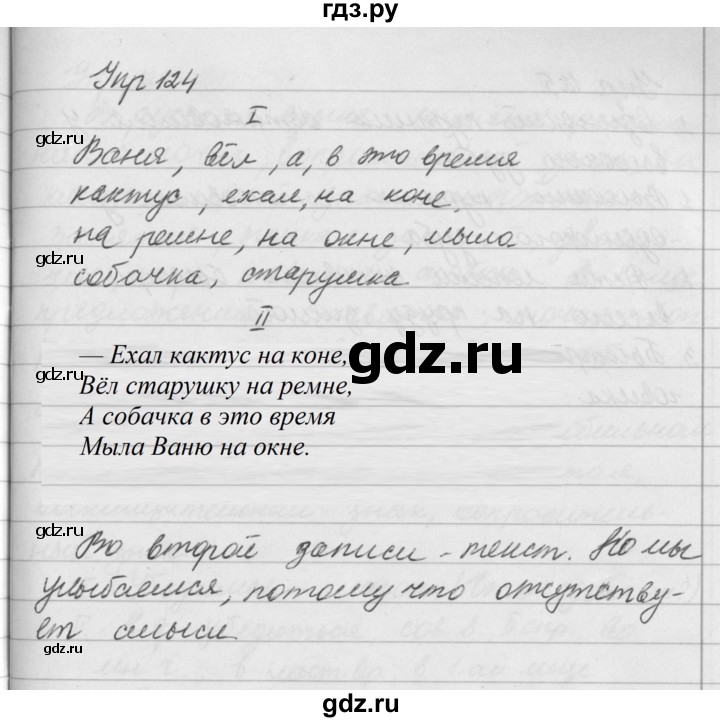 гдз.ру
Упр 124
gdz.ru
I
Ваня, вёл, а, в это время
gdz.ru
кактус, ехал, на коне,
на ремне, на окне, мыла
gdz.ru
собачка, старушка
II
— Ехал кактус на коне,
Вёл старушку на ремне,
А собачка в это время
Мыла Ваню на окне.
gdz.ru
gdz.ru
gdz.ru
Во второй записи - текст. Но мы
улыбаемся, потому что отсутству-
ет смысл
gdz.ru
gdz.ru